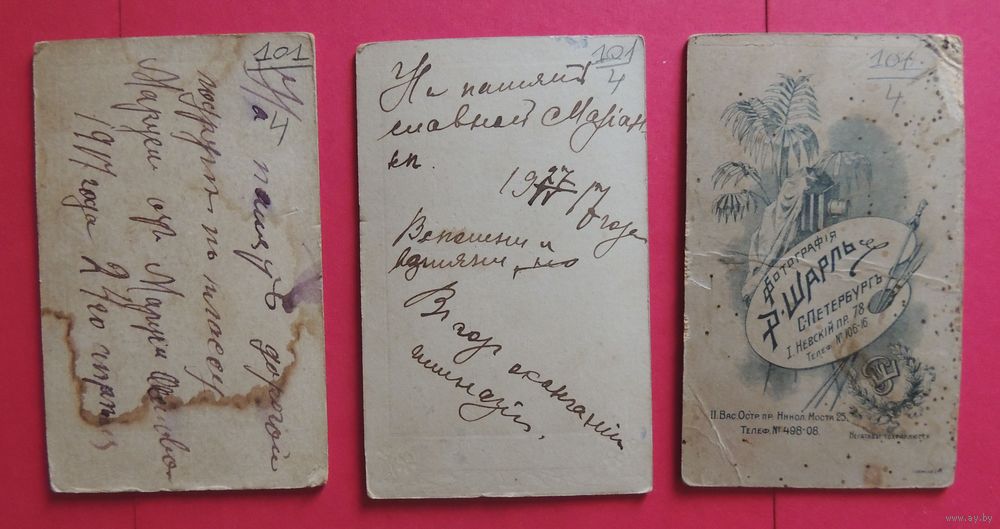 101
4
На память дорогой
подруги по классу
Маруси отъ Маруси
1917 года 24го марта
101
4
На память
славной Маріан-
кѣ.
1917 года
Вспомни и
Въ годъ окончанія
гимназіи.
101
4
Фотографія
Р. Шарль
С-Петербургъ
I. Невскій пр. 78
Телеф. № 106-16
II. Вас. Остр. пр. Никол. Моста 25.
Телеф. № 498-08.
Негативы сохраняются
www.ay.by